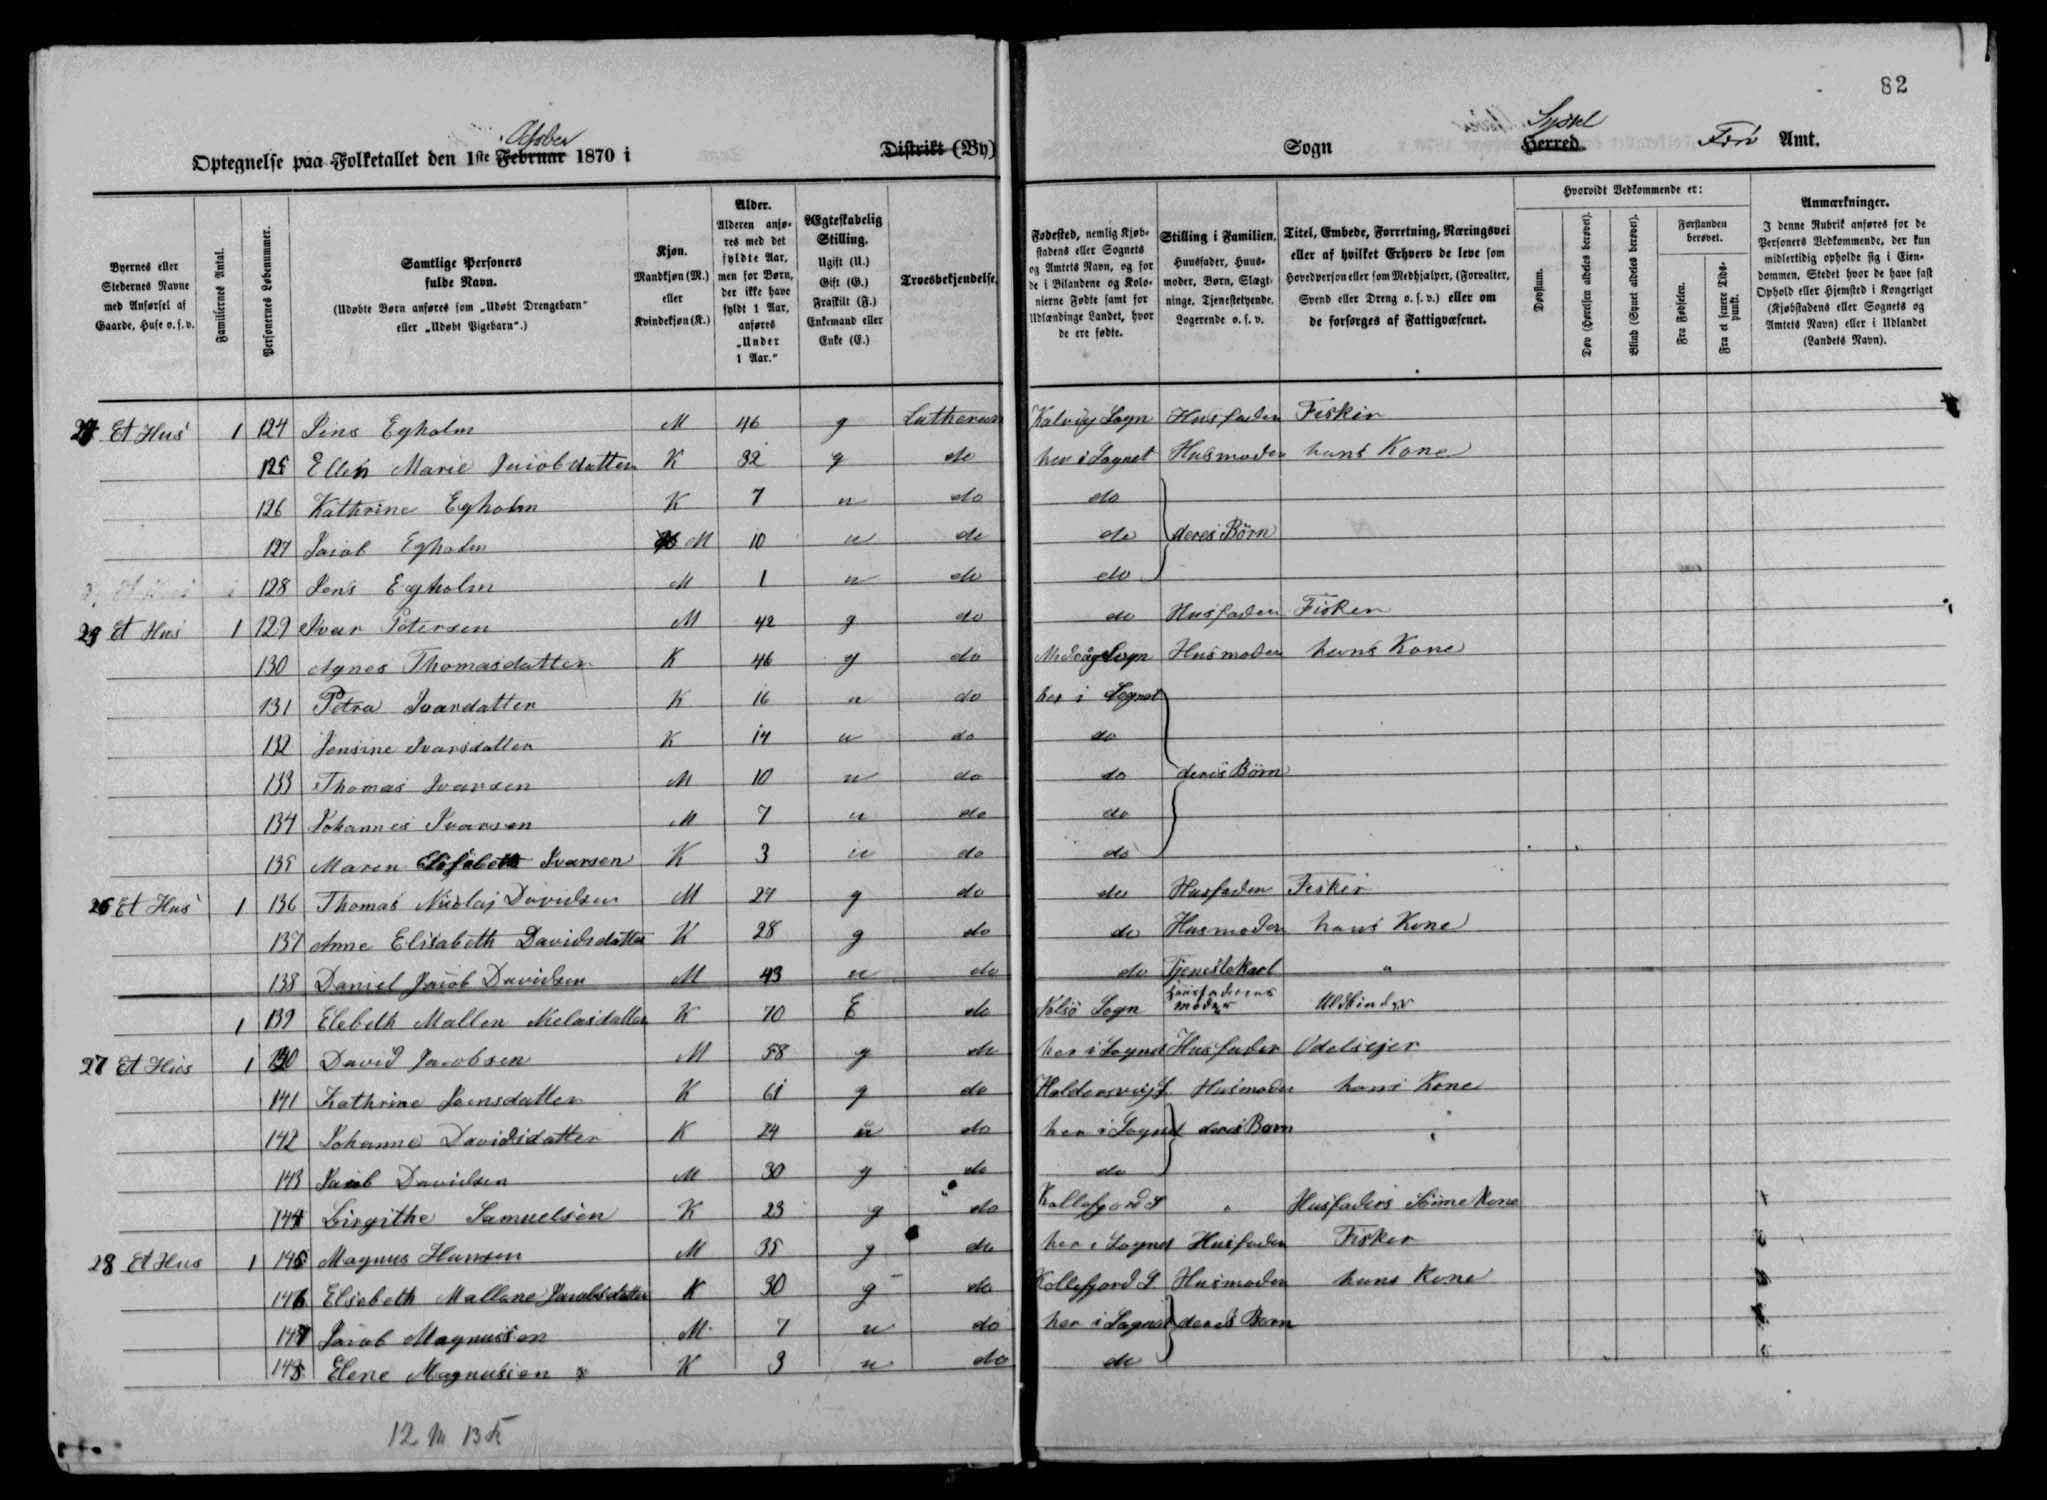 82
Optegnelse paa Folketallet den 1ste Februar October 1870 i Distrikt (By) Sogn Herred Syssel Færö Amt.
Byernes eller Stedernes Navne med Anførsel af Gaarde, Huse o. s. v.
Familiernes Antal.
Personernes Løbenummer.
Samtlige Personers fulde Navn.
(Udøbte Børn anføres som „Udøbt Drengebarn“ eller „Udøbt Pigebarn“.)
Kjøn.
Mandkjøn (M.) eller Kvindekjøn (K.)
Alder.
Alderen anføres med det fyldte Aar, men for Børn, der ikke have fyldt 1 Aar, anføres „Under 1 Aar.“
Ægteskabelig Stilling.
Ugift (U.) Gift (G.) Fraskilt (F.) Enkemand eller Enke (E.)
Troesbekjendelse.
Fødested, nemlig Kjøbstadens eller Sognets og Amtets Navn, og for de i Bilandene og Kolonierne Fødte samt for Udlændinge Landet, hvor de ere fødte.
Stilling i Familien.
Huusfader, Huusmoder, Børn, Slægtninge, Tjenestetyende, Logerende o. s. v.
Titel, Embede, Forretning, Næringsvei eller af hvilket Erhverv de leve som Hovedperson eller som Medhjælper, (Forvalter, Svend eller Dreng o. s. v.) eller om de forsørges af Fattigvæsenet.
Hvorvidt Vedkommende er:
Døvstum.
Døv (Hørelsen aldeles berøvet).
Blind (Synet aldeles berøvet).
Forstanden berøvet.
Fra Fødselen.
Fra et senere Tidspunkt.
Anmærkninger.
I denne Rubrik anføres for de Personers Vedkommende, der kun midlertidig opholde sig i Eiendommen, Stedet hvor de have fast Ophold eller Hjemsted i Kongeriget (Kjøbstadens eller Sognets og Amtets Navn) eller i Udlandet (Landets Navn).
24 Et Hus 1 124 Jens Egholm M 46 g Lutheran Kalvig Sogn Husfader Fisker
125 Ellen Marie Jacobdatter K 32 g do her i Sognet Husmoder hans Kone
126 Kathrine Egholm K 7 u do do
127 Jacob Egholm M 10 u do do deres Börn
128 Jens Egholm M 1 u do do
25 Et Hus 1 129 Ivar Petersen M 42 g do do Husfader Fisker
130 Agnes Thomasdatter K 46 g do Midvåg Sogn Husmoder hans Kone
131 Petra Ivardatter K 16 u do her i Sognet
132 Jensine Ivarsdatter K 14 u do do
133 Thomas Ivarsen M 10 u do do deres Börn
134 Johannes Ivarsen M 7 u do do
135 Maren Elisabeth Ivarsen K 3 u do do
26 Et Hus 1 136 Thomas Nicolaj Davidsen M 27 g do do Husfader Fisker
137 Anne Elisabeth Davidsdatter K 28 g do do Husmoder hans Kone
138 Daniel Jacob Davidsen M 43 u do do Tjenestekarl "
1 139 Elebeth Mallen Nielasdatter K 70 E do Nolsö Sogn Huusfaderens moder Uldbinder
27 Et Hus 1 140 David Jacobsen M 58 g do her i Sognet Husfader Odelsejer
141 Kathrine Joensdatter K 61 g do Haldersvig S Husmoder hans Kone
142 Johanne Davidsdatter K 24 u do her i Sognet deres Barn "
143 Jacob Davidsen M 30 g do do
144 Birgithe Samuelsen K 23 g do Kollefjord S " Husfaders Sönne Kone
28 Et Hus 1 145 Magnus Hansen M 35 g do her i Sognet Husfader Fisker
146 Elsebeth Mallene Jacobsdatter K 30 g do Kollefjord S Husmoder hans Kone
147 Jacob Magnussen M 7 u do her i Sognet deres Barn
148 Elene Magnussen K 3 u do do
12 M 13 K